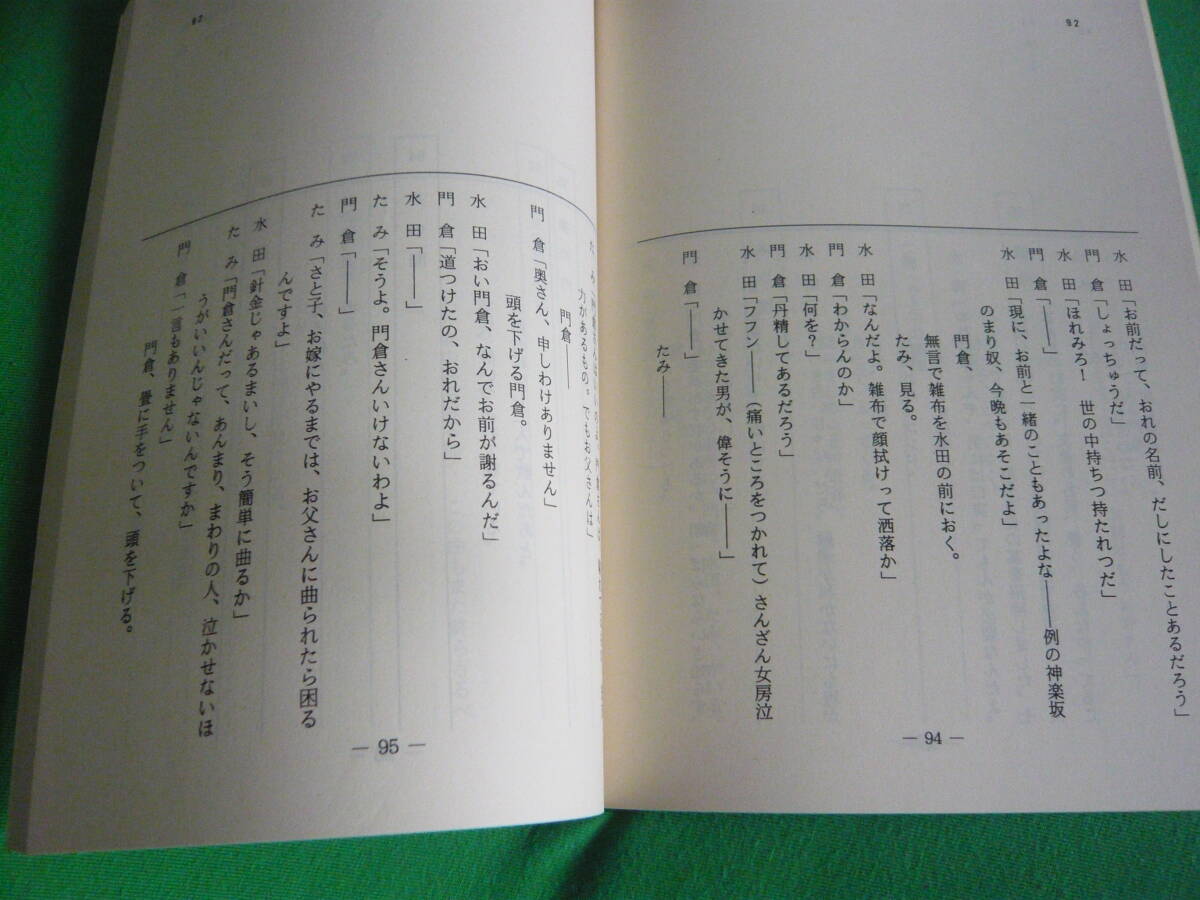 92
水田「お前だって、おれの名前、だしにしたことあるだろう」
門倉「しょっちゅうだ」
水田「ほれみろ！　世の中持ちつ持たれつだ」
門倉「――」
水田「現に、お前と一緒のこともあったよな――例の神楽坂
のまり奴、今晩もあそこだよ」
門倉、
無言で雑布を水田の前におく。
たみ、見る。
水田「なんだよ。雑布で顔拭けって洒落か」
門倉「わからんのか」
水田「何を？」
門倉「丹精してあるだろう」
水田「フフン――（痛いところをつかれて）さんざん女房泣
かせてきた男が、偉そうに――」
門倉「――」
たみ――
― 94 ―
92
力があるもの。でもお父さんは」
門倉――
門倉「奥さん、申しわけありません」
頭を下げる門倉。
水田「おい門倉、なんでお前が謝るんだ」
門倉「道つけたの、おれだから」
水田「――」
たみ「そうよ。門倉さんいけないわよ」
門倉「――」
たみ「さと子、お嫁にやるまでは、お父さんに曲られたら困る
んですよ」
水田「針金じゃあるまいし、そう簡単に曲るか」
たみ「門倉さんだって、あんまり、まわりの人、泣かせないほ
うがいいんじゃないんですか」
門倉「一言もありません」
門倉、畳に手をついて、頭を下げる。
― 95 ―